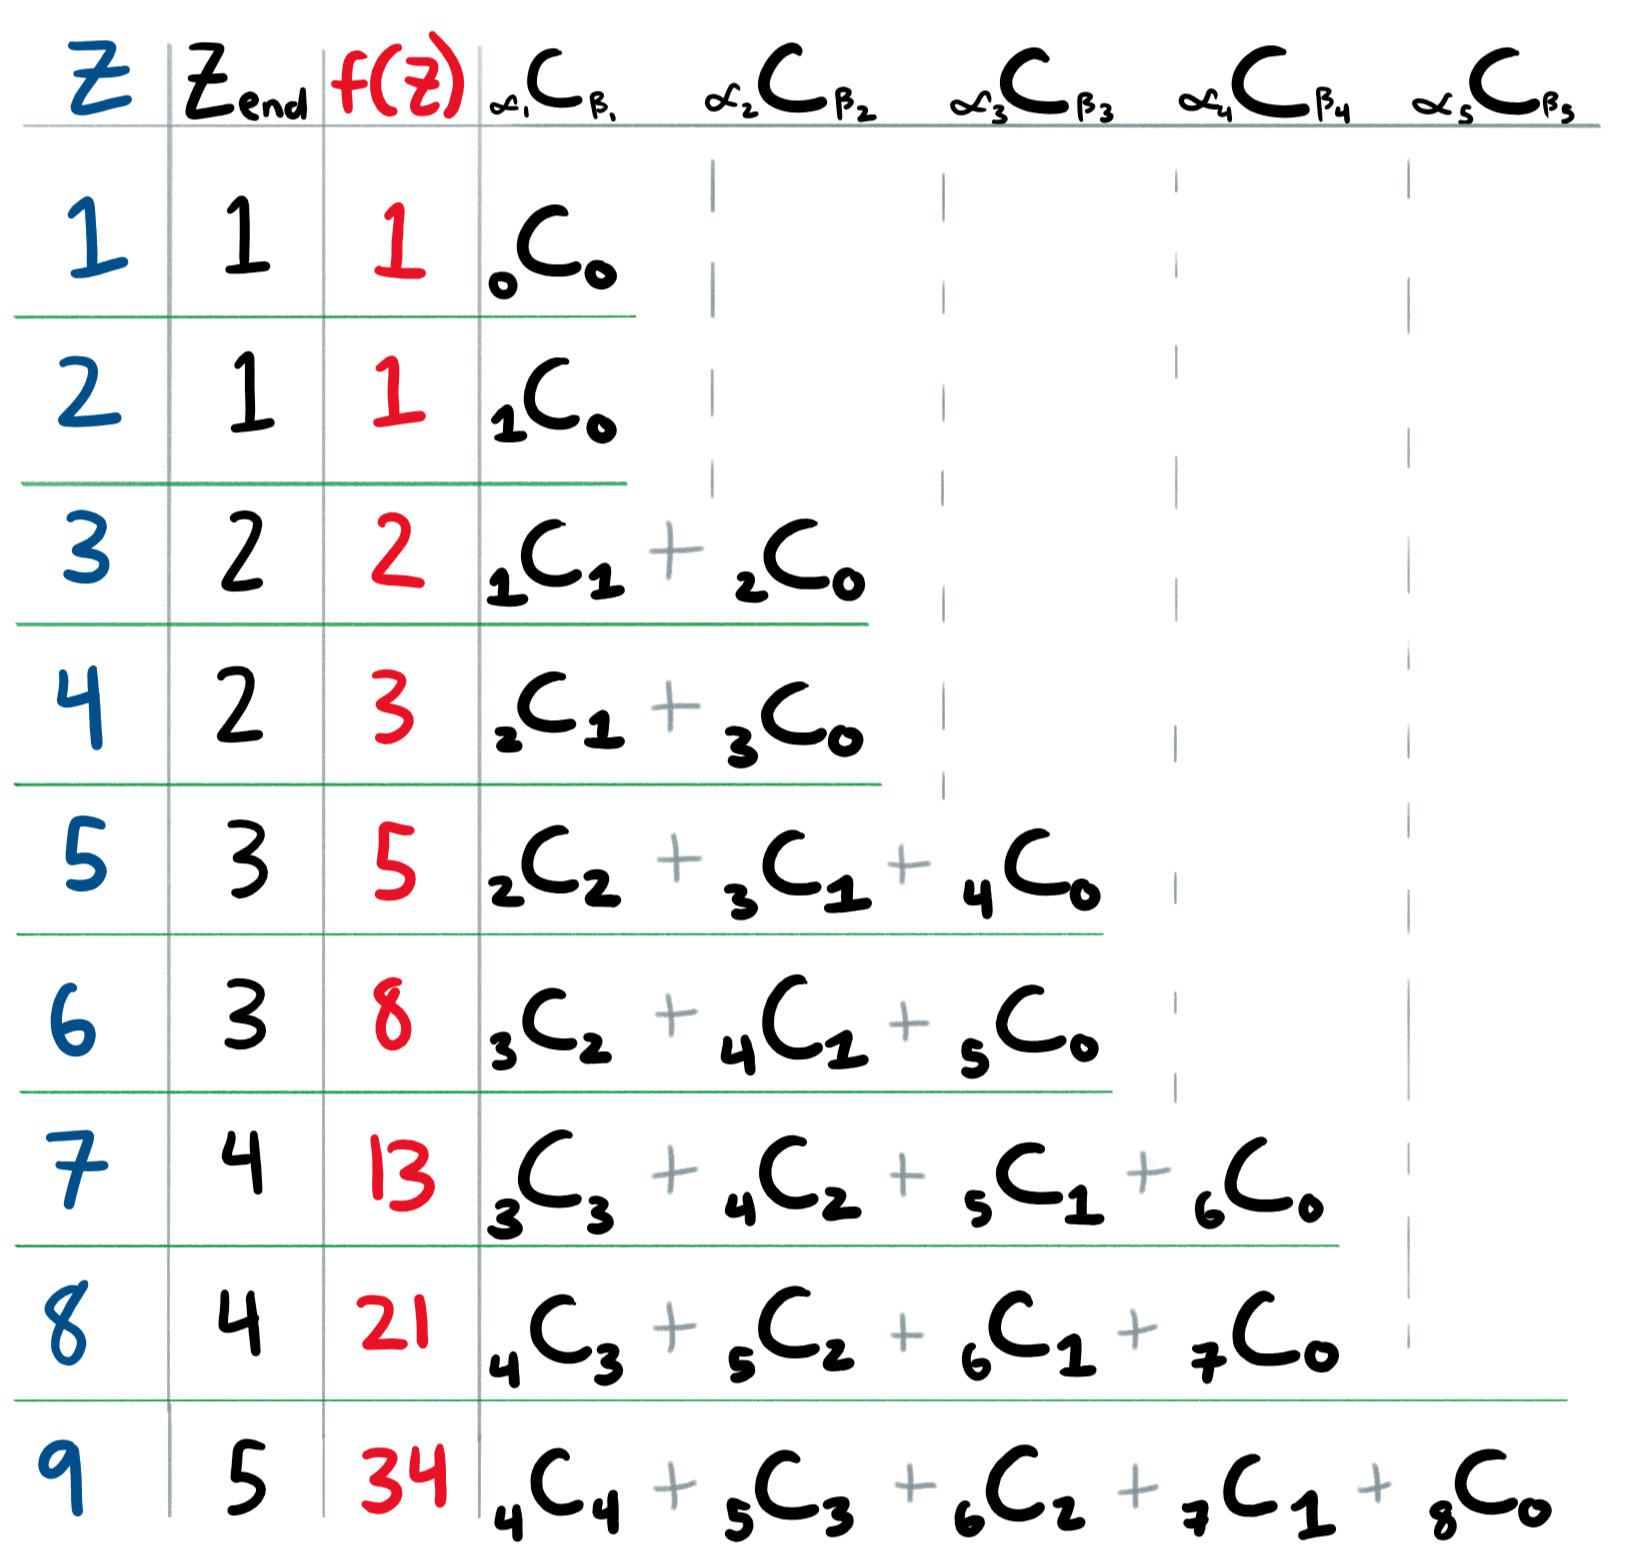 Z Zend f(Z) α₁Cβ₁ α₂Cβ₂ α₃Cβ₃ α₄Cβ₄ α₅Cβ₅
1 1 1 ₀C₀
2 1 1 ₁C₀
3 2 2 ₁C₁ + ₂C₀
4 2 3 ₂C₁ + ₃C₀
5 3 5 ₂C₂ + ₃C₁ + ₄C₀
6 3 8 ₃C₂ + ₄C₁ + ₅C₀
7 4 13 ₃C₃ + ₄C₂ + ₅C₁ + ₆C₀
8 4 21 ₄C₃ + ₅C₂ + ₆C₁ + ₇C₀
9 5 34 ₄C₄ + ₅C₃ + ₆C₂ + ₇C₁ + ₈C₀